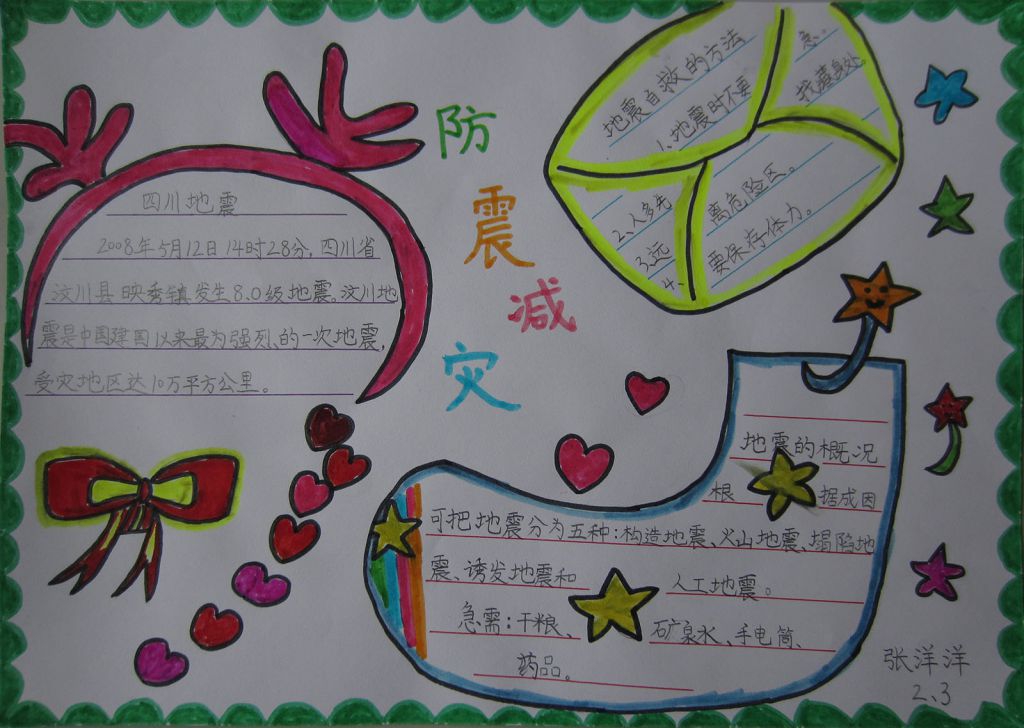 防
震
减
灾
四川地震
2008年5月12日14时28分,四川省
汶川县映秀镇发生8.0级地震。汶川地
震是中国建国以来最为强烈的一次地震,
受灾地区达10万平方公里。
地震自救的方法
1、地震时不要
急。
2、人多先
找藏身处。
3、远
离危险区。
4、
要保存体力。
地震的概况
根 据成因
可把地震分为五种:构造地震、火山地震、塌陷地
震、诱发地震和 人工地震。
急需:干粮、 矿泉水、手电筒、
药品。
张洋洋
2、3